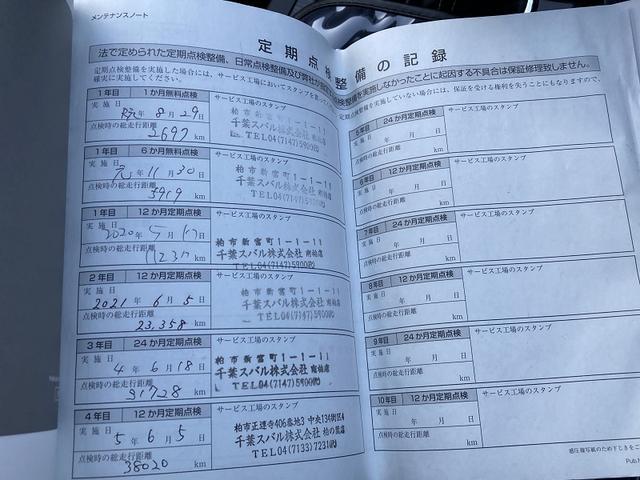 メンテナンスノート
定期点検整備の記録
法で定められた定期点検整備、日常点検整備及び弊社が指定
点検整備を実施しなかったことに起因する不具合は保証修理致しません。
定期点検整備を実施した場合には、サービス工場においてスタンプを
確実に実施してください。
定期点検整備を実施していない場合には、保証を受ける権利を失うことにもなりますので、
1年目 1か月無料点検 サービス工場のスタンプ
実施日 年 8月29日
千葉スバル株式会社 南柏店
TEL04(7147)5900㈹
点検時の総走行距離
2697 km
1年目 6か月無料点検 サービス工場のスタンプ
実施日 元年11月30日
柏市新富町1-1-11
千葉スバル株式会社 南柏店
TEL04(7147)5900㈹
点検時の総走行距離
5919 km
1年目 12か月定期点検 サービス工場のスタンプ
実施日 2020年5月17日
柏市新富町1-1-11
千葉スバル株式会社 南柏店
TEL04(7147)5900㈹
点検時の総走行距離
11237 km
2年目 12か月定期点検 サービス工場のスタンプ
実施日 2021年6月5日
柏市新富町1-1-11
千葉スバル株式会社 南柏店
TEL04(7147)5900㈹
点検時の総走行距離
23,358 km
3年目 24か月定期点検 サービス工場のスタンプ
実施日 4年6月18日
柏市新富町1-1-11
千葉スバル株式会社 南柏店
TEL04(7147)5900㈹
点検時の総走行距離
31728 km
4年目 12か月定期点検 サービス工場のスタンプ
実施日 5年6月5日
柏市正連寺406番地3 中央134街区4
千葉スバル株式会社 柏の葉店
TEL04(7133)7231㈹
点検時の総走行距離
38020 km
5年目 24か月定期点検 サービス工場のスタンプ
実施日 年 月 日
点検時の総走行距離
km
6年目 12か月定期点検 サービス工場のスタンプ
実施日 年 月 日
点検時の総走行距離
km
7年目 24か月定期点検 サービス工場のスタンプ
実施日 年 月 日
点検時の総走行距離
km
8年目 12か月定期点検 サービス工場のスタンプ
実施日 年 月 日
点検時の総走行距離
km
9年目 24か月定期点検 サービス工場のスタンプ
実施日 年 月 日
点検時の総走行距離
km
10年目 12か月定期点検 サービス工場のスタンプ
実施日 年 月 日
点検時の総走行距離
km
感圧複写紙のため下じきをご
Pub.N